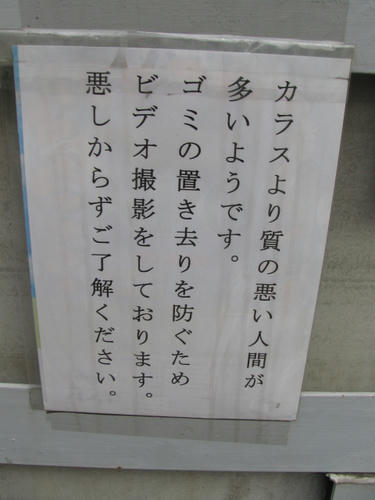 カラスより質の悪い人間が
多いようです。
ゴミの置き去りを防ぐため
ビデオ撮影をしております。
悪しからずご了解ください。